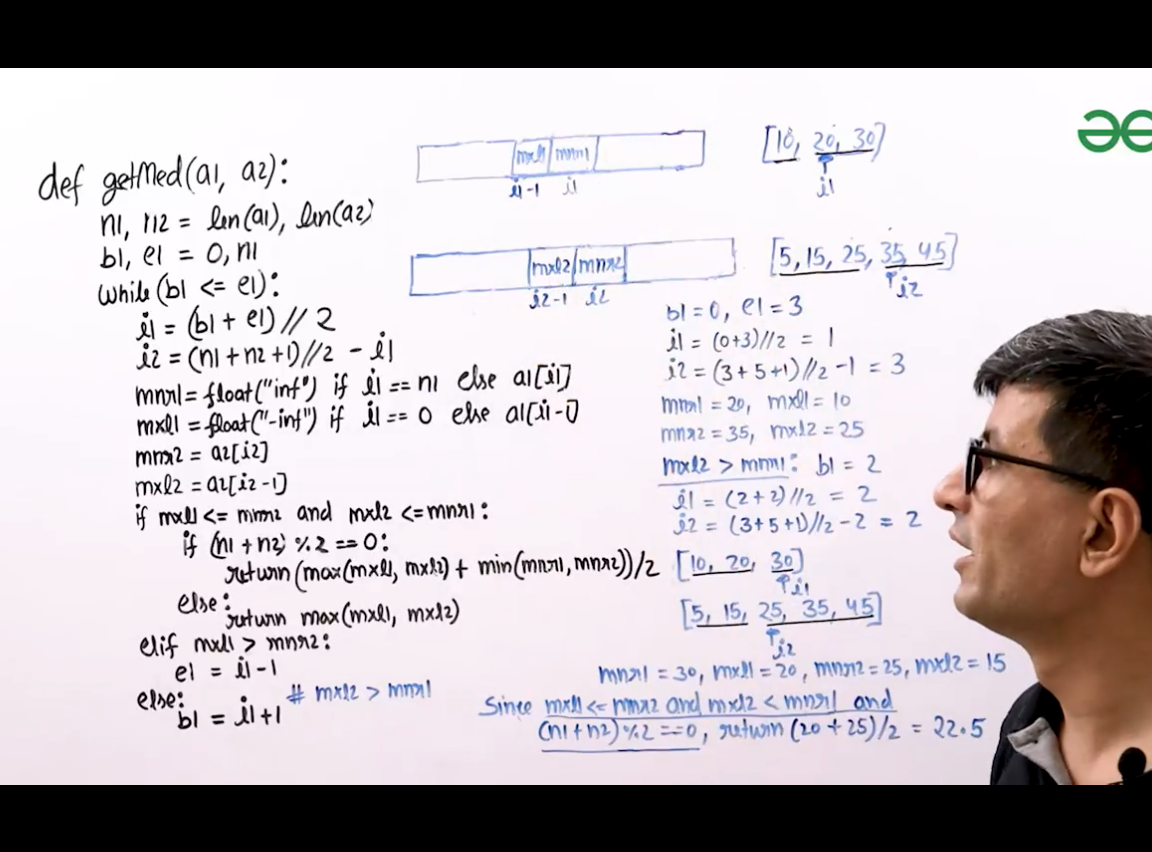 def getMed(a1, a2):
n1, n2 = len(a1), len(a2)
b1, e1 = 0, n1
while (b1 <= e1):
i1 = (b1 + e1) // 2
i2 = (n1 + n2 + 1) // 2 - i1
mnr1 = float("inf") if i1 == n1 else a1[i1]
mxl1 = float("-inf") if i1 == 0 else a1[i1-1]
mnr2 = a2[i2]
mxl2 = a2[i2-1]
if mxl1 <= mnr2 and mxl2 <= mnr1:
if (n1 + n2) % 2 == 0:
return (max(mxl1, mxl2) + min(mnr1, mnr2))/2
else:
return max(mxl1, mxl2)
elif mxl1 > mnr2:
e1 = i1-1
else: # mxl2 > mnr1
b1 = i1+1
mxl1 mnr1
i1-1 i1
mxl2 mnr2
i2-1 i2
[10, 20, 30]
i1
[5, 15, 25, 35, 45]
i2
b1 = 0, e1 = 3
i1 = (0+3)//2 = 1
i2 = (3+5+1)//2 -1 = 3
mnr1 = 20, mxl1 = 10
mnr2 = 35, mxl2 = 25
mxl2 > mnr1: b1 = 2
i1 = (2+2)//2 = 2
i2 = (3+5+1)//2 -2 = 2
[10, 20, 30]
i1
[5, 15, 25, 35, 45]
i2
mnr1 = 30, mxl1 = 20, mnr2 = 25, mxl2 = 15
Since mxl1 <= mnr2 and mxl2 < mnr1 and
(n1+n2)%2 ==0, return (20+25)/2 = 22.5